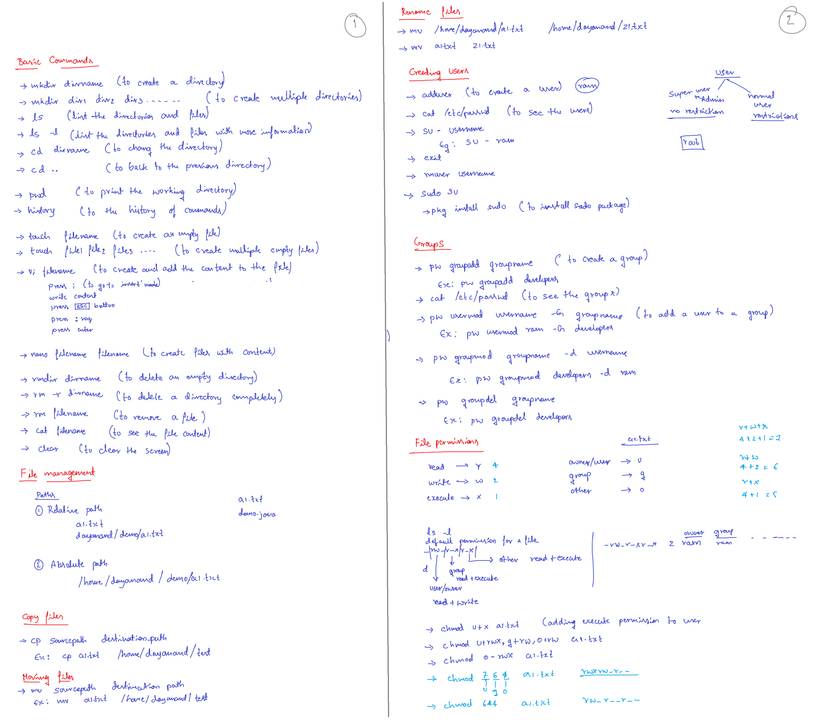 1
Basic Commands
→ mkdir dirname (to create a directory)
→ mkdir dir1 dir2 dir3 ...... (to create multiple directories)
→ ls (list the directories and files)
→ ls -l (list the directories and files with more information)
→ cd dirname (to chang the directory)
→ cd .. (to back to the previous directory)
→ pwd (to print the working directory)
→ history (to the history of commands)
→ touch filename (to create an empty file)
→ touch file1 file2 files .... (to create multiple empty files)
→ vi filename (to create and add the content to the file)
press i (to go to insert mode)
write content
press ESC button
press :wq
press enter
→ nano filename filename (to create files with content)
→ rmdir dirname (to delete an empty directory)
→ rm -r dirname (to delete a directory completely)
→ rm filename (to remove a file)
→ cat filename (to see the file content)
→ clear (to clear the screen)
File management
Paths
① Relative path
a1.txt
a1.txt
demo.java
dayanand/demo/a1.txt
② Absolute path
/home/dayanand/demo/a1.txt
Copy files
→ cp sourcepath destination.path
Ex: cp a1.txt /home/dayanand/test
Moving files
→ mv sourcepath destination path
Ex: mv a1.txt /home/dayanand/test
2
Rename files
→ mv /home/dayanand/a1.txt /home/dayanand/21.txt
→ mv a1.txt 21.txt
Creating users
→ adduser (to create a user) ram
→ cat /etc/passwd (to see the users)
→ su - username
Eg: su - ram
→ exit
→ rmuser username
→ sudo su
→ pkg install sudo (to install sudo package)
user
super user
Admin
no restriction
normal
user
restrictions
root
Groups
→ pw groupadd groupname (to create a group)
Ex: pw groupadd developers
→ cat /etc/passwd (to see the groups)
→ pw usermod username -G groupname (to add a user to a group)
Ex: pw usermod ram -G developers
→ pw groupmod groupname -d username
Ex: pw groupmod developers -d ram
→ pw groupdel groupname
Ex: pw groupdel developers
File permissions
read → r 4
write → w 2
execute → x 1
a1.txt
owner/user → u
group → g
other → o
r+w+x
4+2+1=7
r+w
4+2=6
r+x
4+1=5
ls -l
default permission for a file
-|rw-|r-x|r-x|
other read+execute
group
read+execute
d
user/owner
read+write
owner group
-rw-r-xr-x 2 ram ram - - - - - -
→ chmod u+x a1.txt (adding execute permission to user
→ chmod u+rwx, g+rw, o+rw a1.txt
→ chmod o-rwx a1.txt
→ chmod 7 6 4 a1.txt rwxrw-r--
u g o
→ chmod 644 a1.txt rw-r--r--